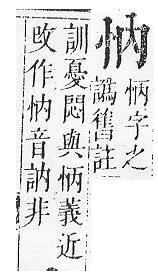 ⿰忄内
怲字之
譌舊註
訓憂悶與怲義近
改作⿰忄内音訥非